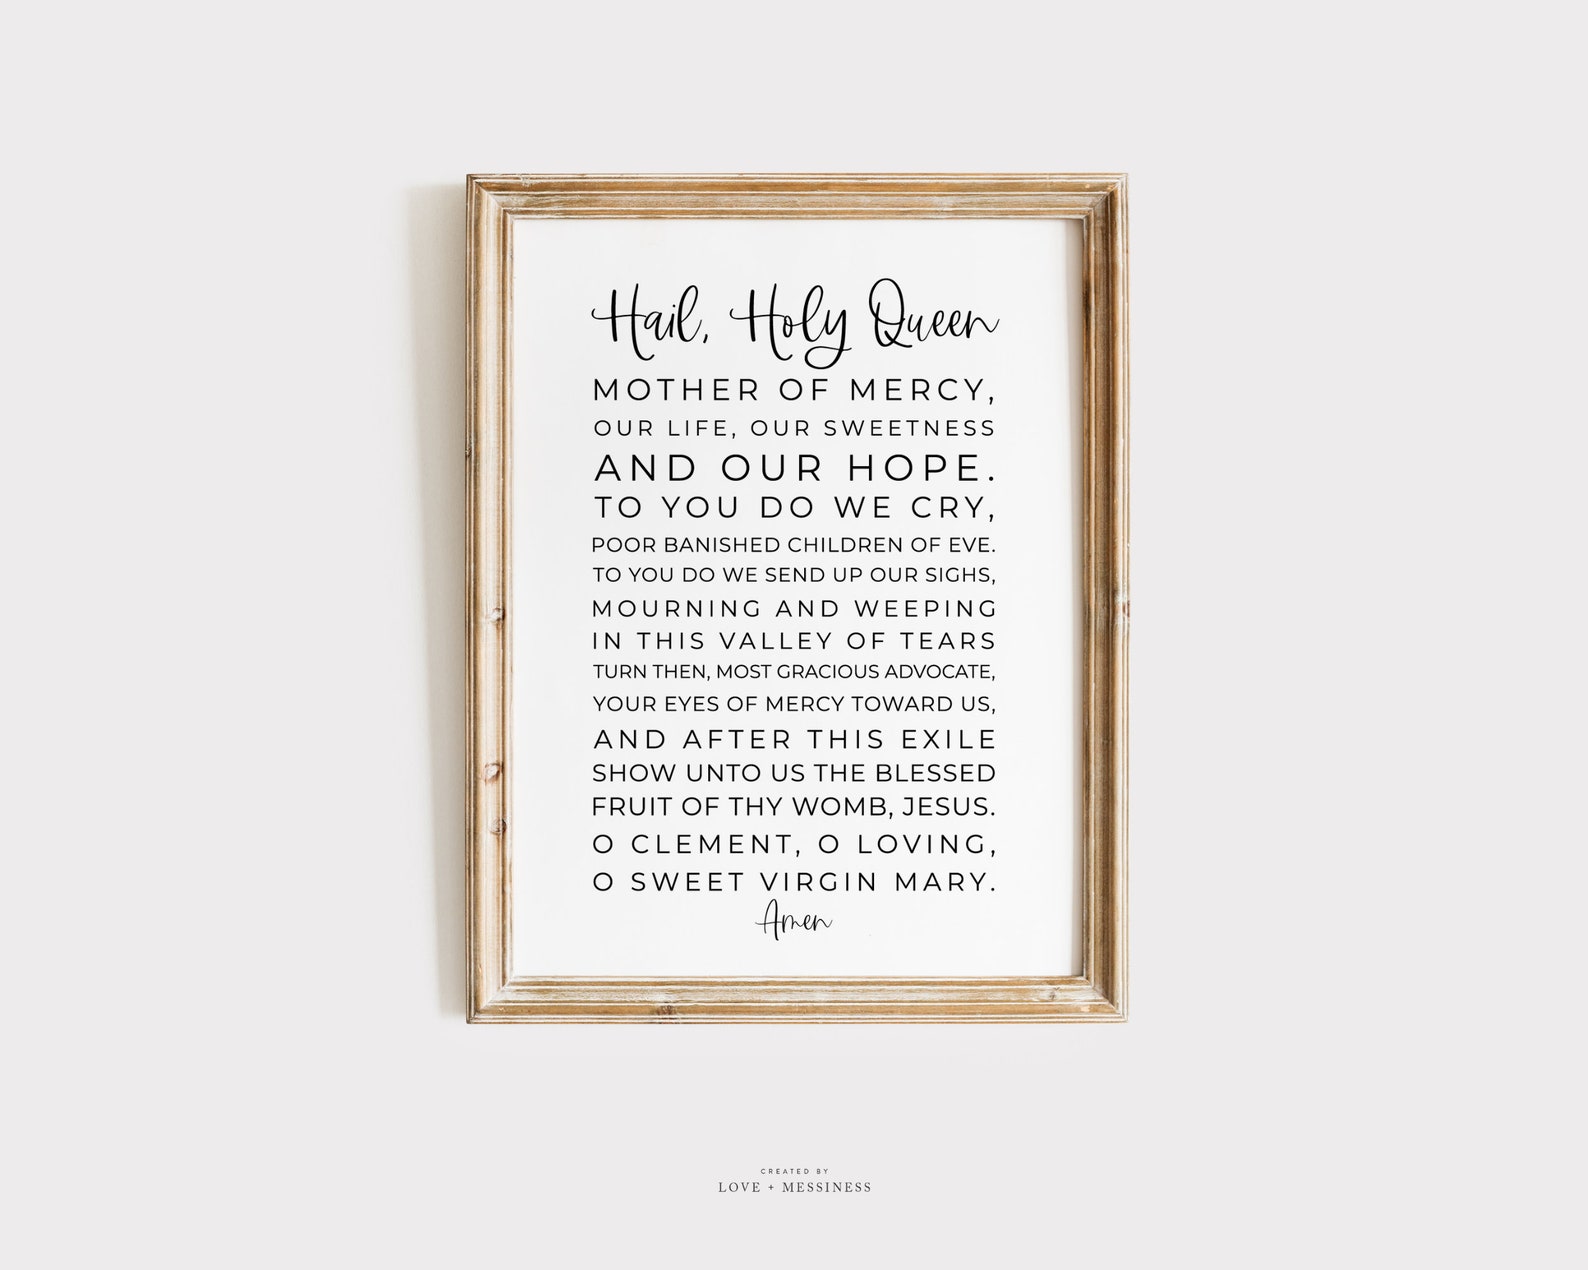 Hail, Holy Queen
MOTHER OF MERCY,
OUR LIFE, OUR SWEETNESS
AND OUR HOPE.
TO YOU DO WE CRY,
POOR BANISHED CHILDREN OF EVE.
TO YOU DO WE SEND UP OUR SIGHS,
MOURNING AND WEEPING
IN THIS VALLEY OF TEARS
TURN THEN, MOST GRACIOUS ADVOCATE,
YOUR EYES OF MERCY TOWARD US,
AND AFTER THIS EXILE
SHOW UNTO US THE BLESSED
FRUIT OF THY WOMB, JESUS.
O CLEMENT, O LOVING,
O SWEET VIRGIN MARY.
Amen
CREATED BY
LOVE + MESSINESS